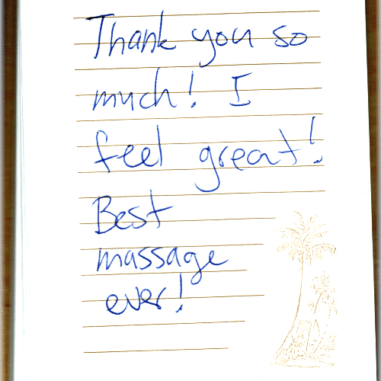 Thank you so
much! I
feel great!
Best
massage
ever!